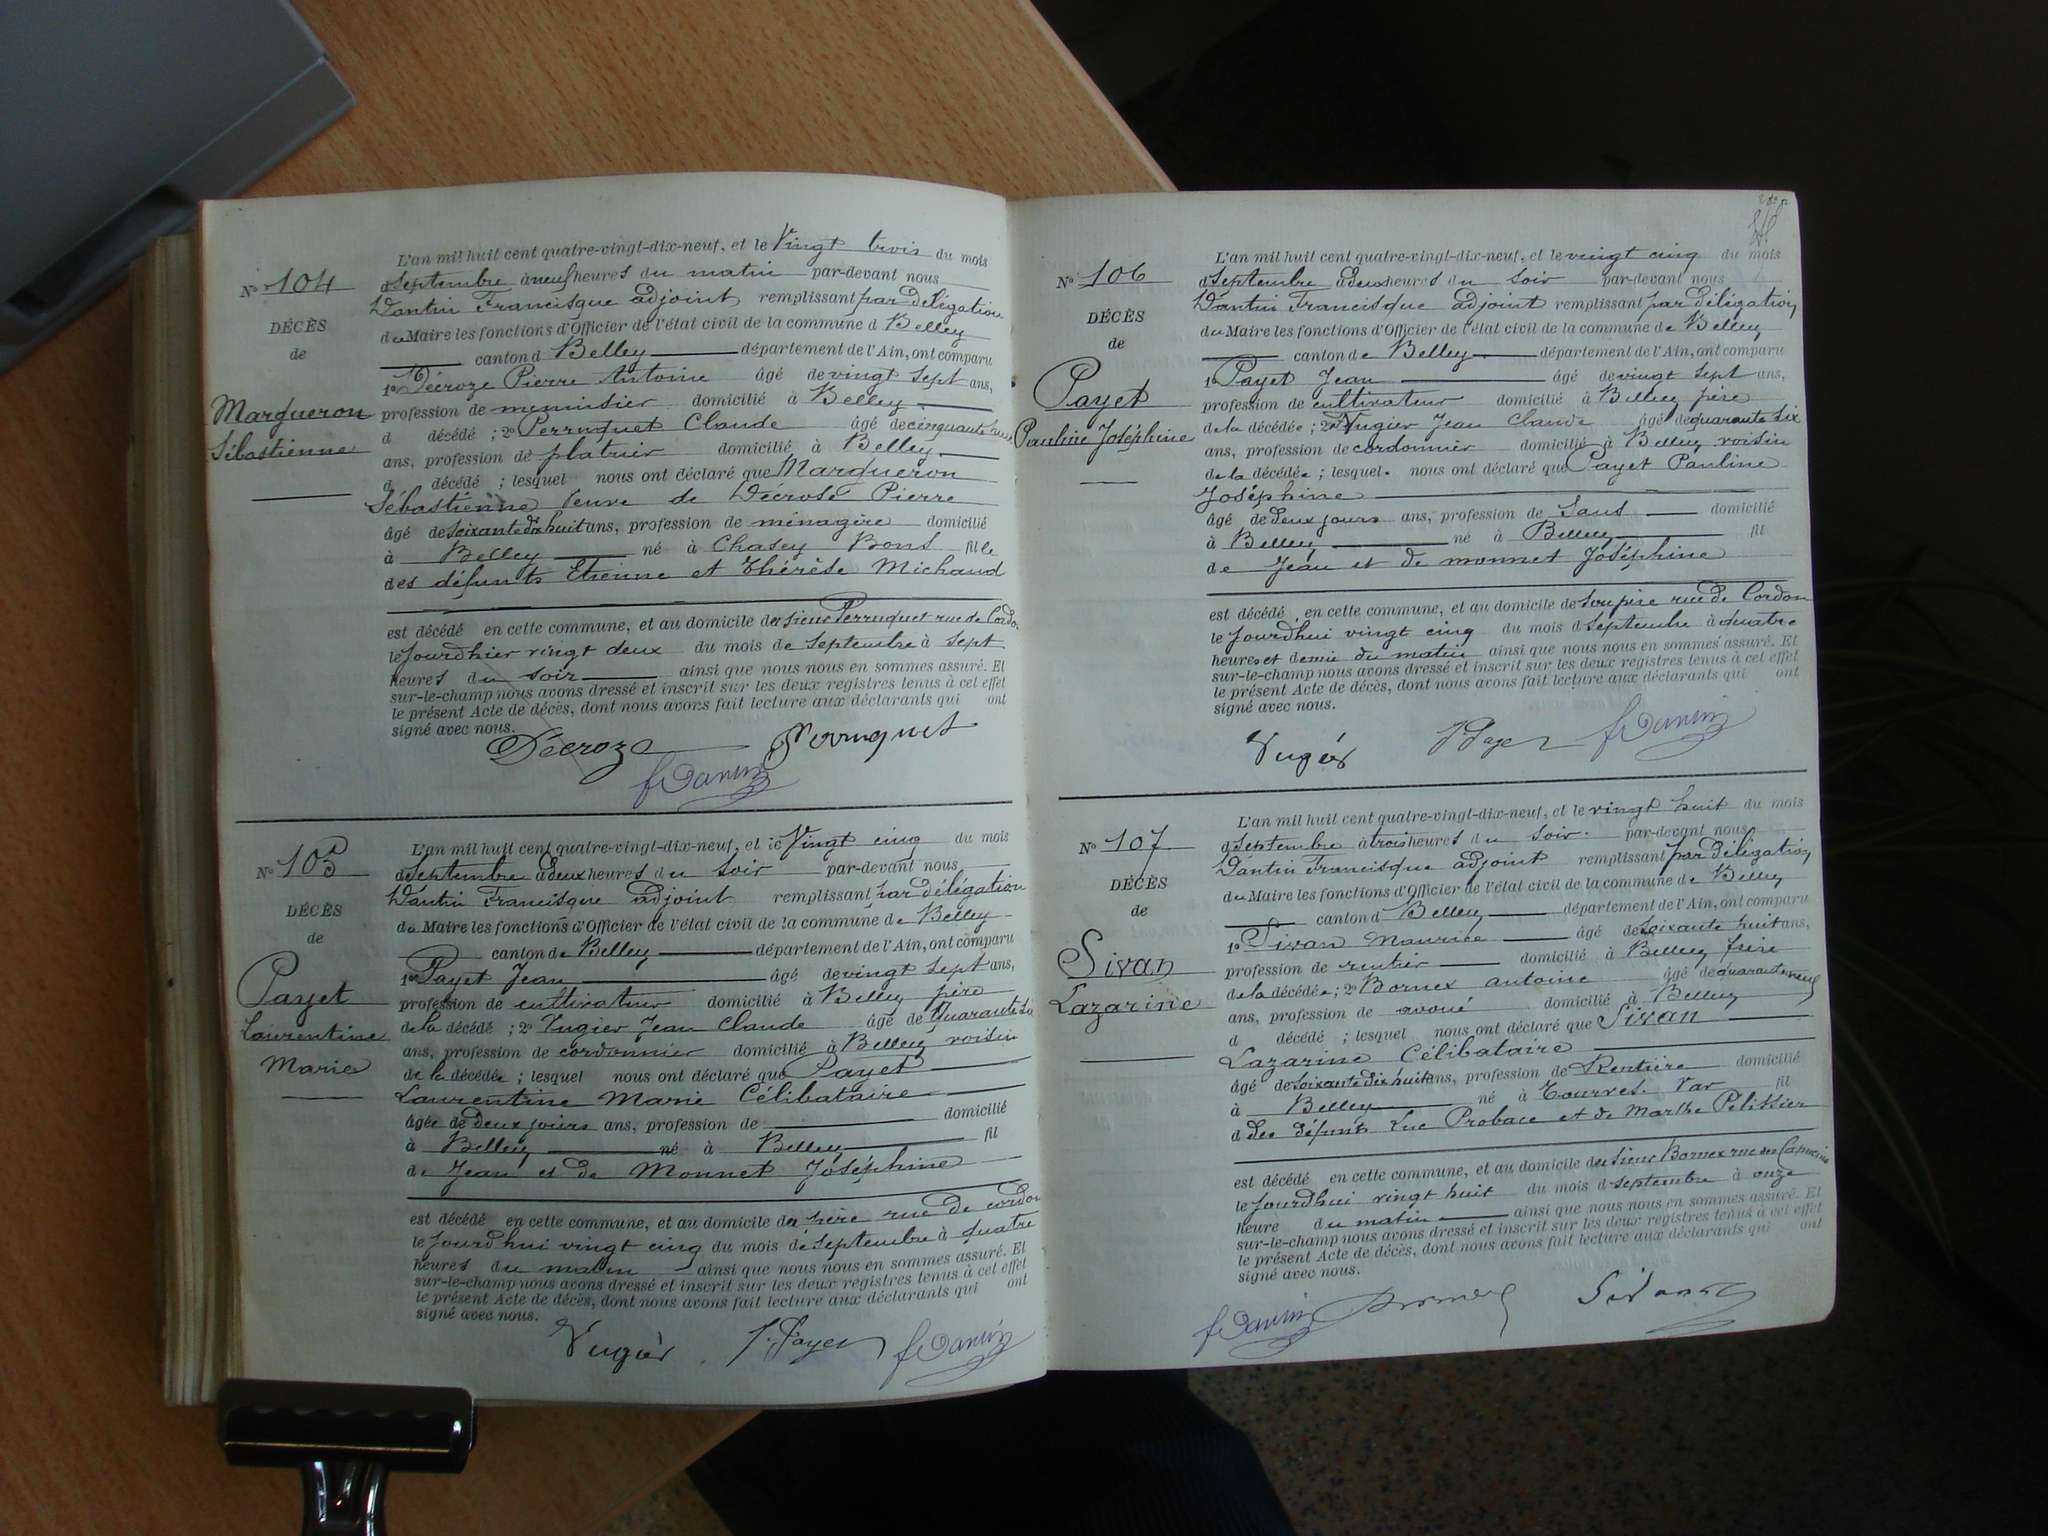 N° 104
DÉCÈS
de
Margueron
Sébastienne
L'an mil huit cent quatre-vingt-dix-neuf, et le Vingt trois du mois
d septembre à neuf heures du matin par-devant nous
Dantin Francisque adjoint remplissant par délégation
du Maire les fonctions d'Officier de l'état civil de la commune d Belley
canton d Belley département de l'Ain, ont comparu
1° Décroze Pierre Antoine âgé de vingt sept ans,
profession de menuisier domicilié à Belley
d décédé ; 2° Perruquet Claude âgé de cinquante
ans, profession de platrier domicilié à Belley
d décédé ; lesquel nous ont déclaré que Margueron
Sébastienne Veuve de Décrose Pierre
âgé de soixante dix huit ans, profession de ménagère domicilié
à Belley né à Chasey Bons fille
des défunts Etienne et Thérèse Michaud
est décédé en cette commune, et au domicile du sieur Perruquet rue de Cordon
le jourdhier vingt deux du mois de septembre à sept
heures du soir ainsi que nous nous en sommes assuré. Et
sur-le-champ nous avons dressé et inscrit sur les deux registres tenus à cet effet
le présent Acte de décès, dont nous avons fait lecture aux déclarants qui ont
signé avec nous.
Décroze Perruquet
f Dantin
N° 105
DÉCÈS
de
Payet
Laurentine
Marie
L'an mil huit cent quatre-vingt-dix-neuf, et le Vingt cinq du mois
d septembre à deux heures du soir par-devant nous
Dantin Francisque adjoint remplissant par délégation
du Maire les fonctions d'Officier de l'état civil de la commune de Belley
canton de Belley département de l'Ain, ont comparu
1° Payet Jean âgé de vingt sept ans,
profession de cultivateur domicilié à Belley père
de la décédé ; 2° Vugier Jean Claude âgé de quarante six
ans, profession de cordonnier domicilié à Belley voisin
de la décédée ; lesquel nous ont déclaré que Payet
Laurentine Marie Célibataire
âgée de deux jours ans, profession de domicilié
à Belley né à Belley fil
de Jean et de Monnet Joséphine
est décédé en cette commune, et au domicile du père rue de cordon
le jourdhui vingt cinq du mois de septembre à quatre
heures du matin ainsi que nous nous en sommes assuré. Et
sur-le-champ nous avons dressé et inscrit sur les deux registres tenus à cet effet
le présent Acte de décès, dont nous avons fait lecture aux déclarants qui ont
signé avec nous.
Vugier J. Payet f Dantin
N° 106
DÉCÈS
de
Payet
Pauline Joséphine
L'an mil huit cent quatre-vingt-dix-neuf, et le vingt cinq du mois
d septembre à deux heures du soir par-devant nous
Dantin Francisque adjoint remplissant par délégation
du Maire les fonctions d'Officier de l'état civil de la commune de Belley
canton de Belley département de l'Ain, ont comparu
1° Payet Jean âgé de vingt sept ans,
profession de cultivateur domicilié à Belley père
de la décédée ; 2° Vugier Jean Claude âgé de quarante six
ans, profession de cordonnier domicilié à Belley voisin
de la décédée ; lesquel nous ont déclaré que Payet Pauline
Joséphine
âgé de deux jours ans, profession de Sans domicilié
à Belley né à Belley fil
de Jean et de monnet Joséphine
est décédé en cette commune, et au domicile de son père rue de Cordon
le jourdhui vingt cinq du mois d septembre à quatre
heures et demie du matin ainsi que nous nous en sommes assuré. Et
sur-le-champ nous avons dressé et inscrit sur les deux registres tenus à cet effet
le présent Acte de décès, dont nous avons fait lecture aux déclarants qui ont
signé avec nous.
Vugier J Payet f Dantin
N° 107
DÉCÈS
de
Sivan
Lazarine
L'an mil huit cent quatre-vingt-dix-neuf, et le vingt huit du mois
d septembre à trois heures du soir par-devant nous
Dantin Francisque adjoint remplissant par délégation
du Maire les fonctions d'Officier de l'état civil de la commune de Belley
canton d Belley département de l'Ain, ont comparu
1° Sivan Maurice âgé de soixante huit ans,
profession de rentier domicilié à Belley frère
de la décédée ; 2° Bornex antoine âgé de quarante neuf
ans, profession de avoué domicilié à Belley
d décédé ; lesquel nous ont déclaré que Sivan
Lazarine Célibataire
âgé de soixante dix huit ans, profession de Rentière domicilié
à Belley né à Tourves Var fil
d des défunts Luc Probace et de Marthe Pelissier
est décédé en cette commune, et au domicile du sieur Bornex rue des Capucins
le jourdhui vingt huit du mois d septembre à onze
heure du matin ainsi que nous nous en sommes assuré. Et
sur-le-champ nous avons dressé et inscrit sur les deux registres tenus à cet effet
le présent Acte de décès, dont nous avons fait lecture aux déclarants qui ont
signé avec nous.
f Dantin Bornex Sivan